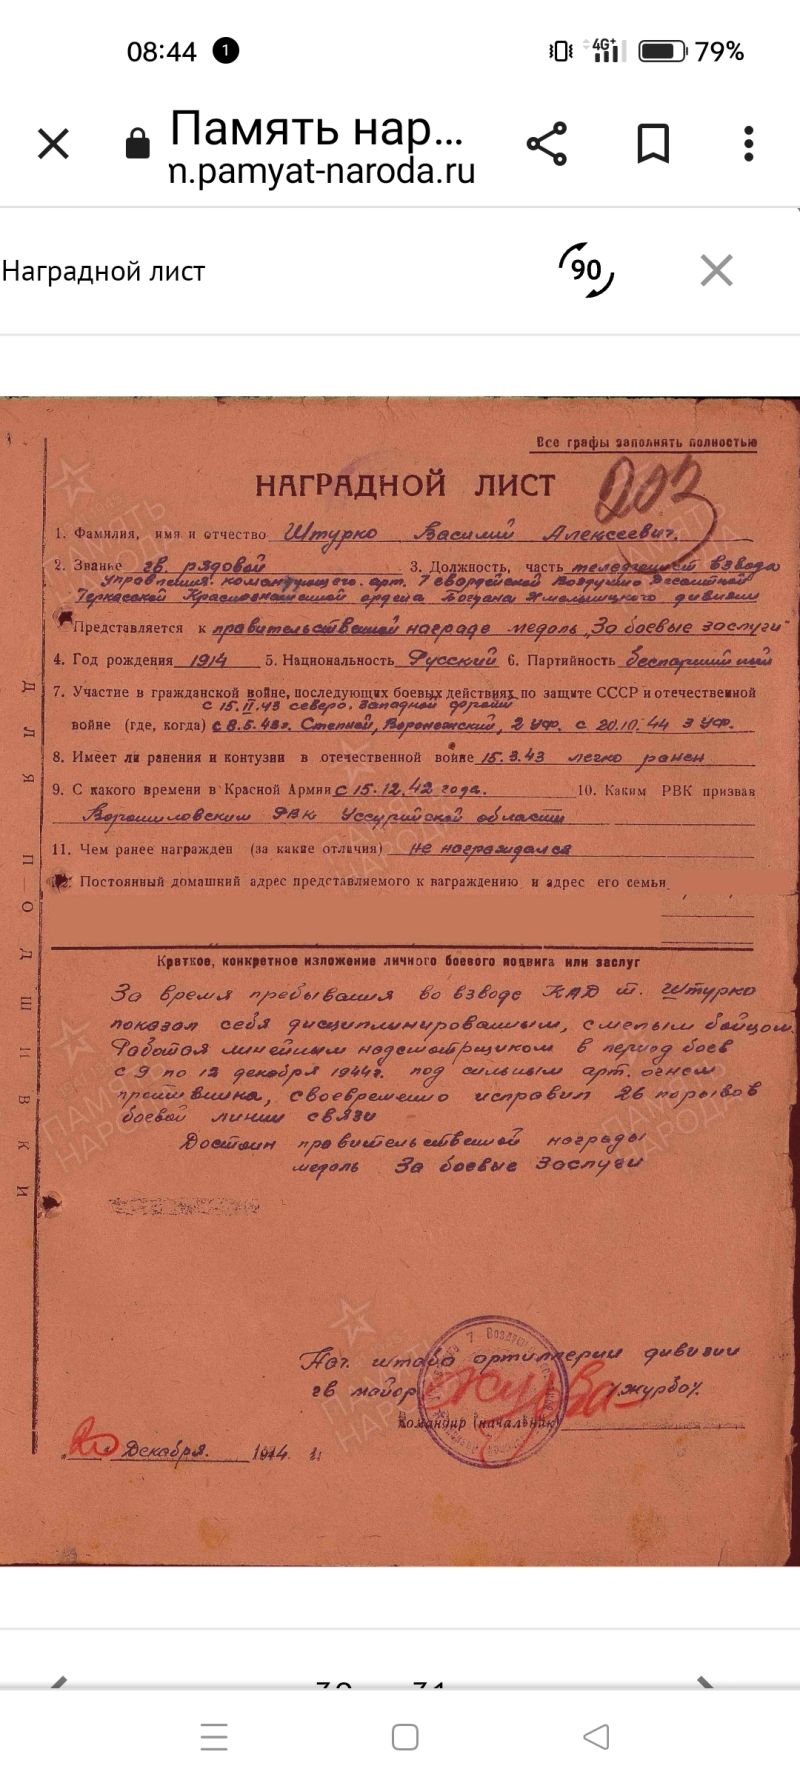 08:44 1 4G+ 79%
Память нар...
n.pamyat-naroda.ru
Наградной лист
90
Все графы заполнять полностью
НАГРАДНОЙ ЛИСТ
203
1. Фамилия, имя и отчество Штурко Василий Алексеевич.
2. Звание гв. рядовой 3. Должность, часть телефонист взвода
управления. командующего. арт. 7 гвардейской Воздушно Десантной
Черкасской Краснознаменной ордена Богдана Хмельницкого дивизии
Представляется к правительственной награде медаль „За боевые заслуги"
4. Год рождения 1914 5. Национальность Русский 6. Партийность беспартийный
7. Участие в гражданской войне, последующих боевых действиях по защите СССР и отечественной
с 15.II.43 северо. Западной фронт
войне (где, когда) с 8.5.43г. Степной, Воронежский, 2 УФ. с 20.10.44 3 УФ.
8. Имеет ли ранения и контузии в отечественной войне 15.3.43 легко ранен
9. С какого времени в Красной Армии с 15.12.42 года. 10. Каким РВК призван
Ворошиловским РВК Уссурийской области
11. Чем ранее награжден (за какие отличия) не награждался
12. Постоянный домашний адрес представляемого к награждению и адрес его семьи
Краткое, конкретное изложение личного боевого подвига или заслуг
За время пребывания во взводе КАД т. Штурко
показал себя дисциплинированным, смелым бойцом.
Работая линейным надсмотрщиком в период боев
с 9 по 12 декабря 1944г. под сильным арт. огнем
противника, своевременно исправил 26 порывов
боевой линии связи
Достоин правительственной награды
медаль За боевые Заслуги
Нач. штаба артиллерии дивизии
гв майор /Журба/.
Командир (начальник)
„20" Декабря. 1944 г.
ДЛЯ ПОДШИВКИ
ПАМЯТЬ НАРОДА